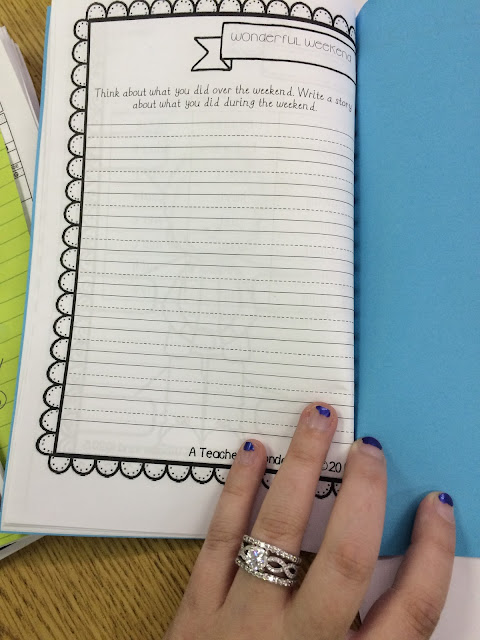 WONDERFUL WEEKEND
Think about what you did over the weekend. Write a story
about what you did during the weekend.
A Teacher ©20